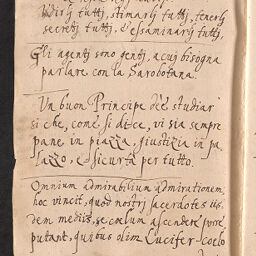 Udirli tutti, stimarli tutti, tenerli
secreti tutti, e essaminarli tutti,
Gli agenti sono genti, a cui bisogna
parlare con la Sarbotana.
Un buon Principe deè studiar
si che, come si dice, vi sia sempre
pane in piazza, giustizia in pa
lazzo, e sicurtà per tutto.
Omnium admirabilium admirationem
hoc vincit, quod nostri sacerdotes iis
dem mediis, se cœlum ascendere posse
putant, quibus olim Lucifer cœlo